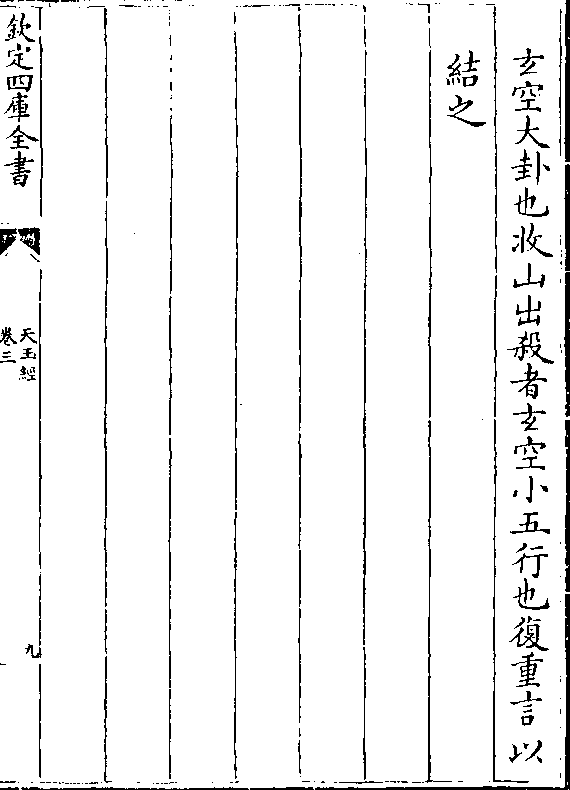 玄空大卦也收山出殺者玄空小五行也復重言以
結之
欽定四庫全書
天玉經
卷三
九